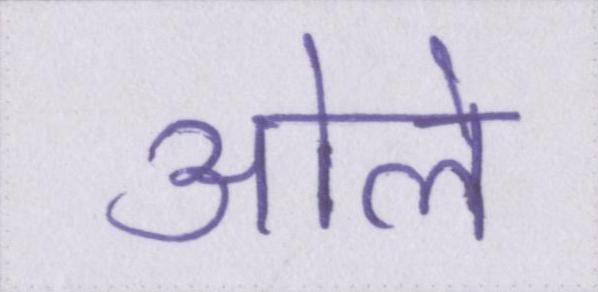 ओले